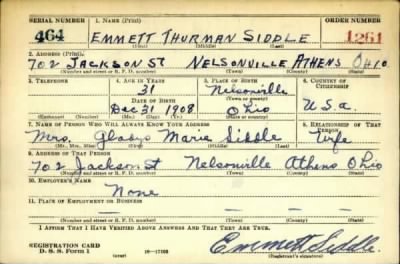 SERIAL NUMBER 1. NAME (Print) ORDER NUMBER
464 EMMETT THURMAN SIDDLE 1261
(First) (Middle) (Last)
2. ADDRESS (Print)
702 JACKSON ST NELSONVILLE ATHENS OHIO
(Number and street or R. F. D. number) (Town) (County) (State)
3. TELEPHONE 4. AGE IN YEARS 5. PLACE OF BIRTH 6. COUNTRY OF CITIZENSHIP
31 Nelsonville
DATE OF BIRTH (Town or county)
Dec 31 1908 Ohio U.S.a.
(Exchange) (Number) (Mo.) (Day) (Yr.) (State or country)
7. NAME OF PERSON WHO WILL ALWAYS KNOW YOUR ADDRESS 8. RELATIONSHIP OF THAT PERSON
Mrs. Gladys Marie Siddle Wife
(Mr., Mrs., Miss) (First) (Middle) (Last)
9. ADDRESS OF THAT PERSON
702 Jackson St Nelsonville Athens Ohio
(Number and street or R. F. D. number) (Town) (County) (State)
10. EMPLOYER'S NAME
None
11. PLACE OF EMPLOYMENT OR BUSINESS
(Number and street or R. F. D. number) (Town) (County) (State)
I AFFIRM THAT I HAVE VERIFIED ABOVE ANSWERS AND THAT THEY ARE TRUE.
REGISTRATION CARD
D. S. S. Form 1 (over) Emmett Siddle
(Registrant's signature)